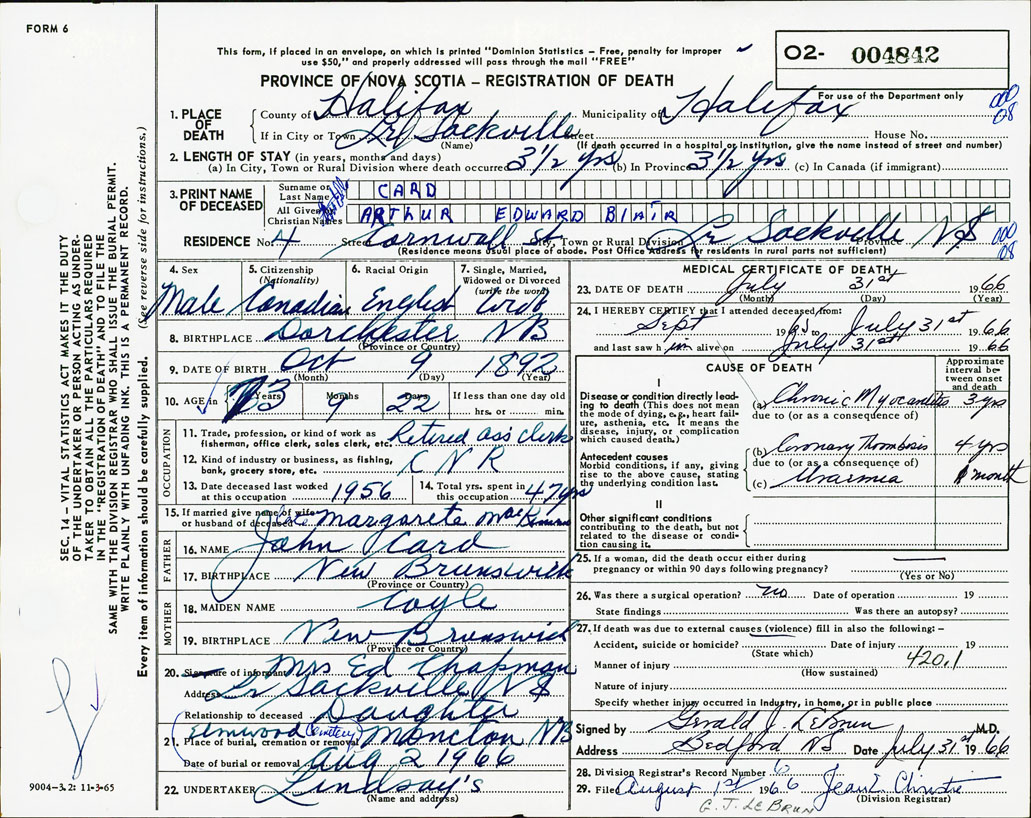 FORM 6
This form, if placed in an envelope, on which is printed "Dominion Statistics – Free, penalty for improper
use $50," and properly addressed will pass through the mail "FREE"
O2- 004842
PROVINCE OF NOVA SCOTIA – REGISTRATION OF DEATH
For use of the Department only
000
08
1. PLACE OF DEATH
County of Halifax Municipality of Halifax
If in City or Town Lr Sackville Street House No.
(Name) (If death occurred in a hospital or institution, give the name instead of street and number)
2. LENGTH OF STAY (in years, months and days)
(a) In City, Town or Rural Division where death occurred 3½ yrs (b) In Province 3½ yrs (c) In Canada (if immigrant)
3. PRINT NAME OF DECEASED
Surname or Last Name CARD
All Given or Christian Names ARTHUR EDWARD BLAIR
RESIDENCE No. 4 Street Cornwall St City, Town or Rural Division Lr Sackville Province NS
(Residence means usual place of abode. Post Office Address for residents in rural parts not sufficient)
000
08
4. Sex Male
5. Citizenship (Nationality) Canadian
6. Racial Origin English
7. Single, Married, Widowed or Divorced (write the word)
8. BIRTHPLACE Dorchester NB
(Province or Country)
9. DATE OF BIRTH Oct 9 1892
(Month) (Day) (Year)
10. AGE in 73 Years 9 Months 22 Days If less than one day old
hrs. or min.
OCCUPATION
11. Trade, profession, or kind of work as fisherman, office clerk, sales clerk, etc. Retired ass clerk
12. Kind of industry or business, as fishing, bank, grocery store, etc. C N R
13. Date deceased last worked at this occupation 1956
14. Total yrs. spent in this occupation 47 yrs
15. If married give name of wife or husband of deceased Margarete
FATHER
16. NAME John Card
17. BIRTHPLACE New Brunswick
(Province or Country)
MOTHER
18. MAIDEN NAME Coyle
19. BIRTHPLACE New Brunswick
(Province or Country)
20. Signature of informant Mrs Ed Chapman
Address Lr Sackville NS
Relationship to deceased Daughter
21. Place of burial, cremation or removal Elmwood (Cemetery) Moncton NB
Date of burial or removal Aug 2 1966
22. UNDERTAKER Lindsay's
(Name and address)
MEDICAL CERTIFICATE OF DEATH
23. DATE OF DEATH July 31st 1966
(Month) (Day) (Year)
24. I HEREBY CERTIFY that I attended deceased from:
Sept 1965 to July 31st 1966
and last saw him alive on July 31st 1966
CAUSE OF DEATH
Approximate interval between onset and death
I
Disease or condition directly leading to death (This does not mean the mode of dying, e.g., heart failure, asthenia, etc. It means the disease, injury, or complication which caused death.)
(a) Chronic Myocarditis 3 yrs
due to (or as a consequence of)
Antecedent causes
Morbid conditions, if any, giving rise to the above cause, stating the underlying condition last.
(b) Coronary Thrombosis 4 yrs
due to (or as a consequence of)
(c) Uraemia 1 month
II
Other significant conditions
contributing to the death, but not related to the disease or condition causing it.
25. If a woman, did the death occur either during pregnancy or within 90 days following pregnancy?
(Yes or No)
26. Was there a surgical operation? no Date of operation 19
State findings Was there an autopsy?
27. If death was due to external causes (violence) fill in also the following: –
Accident, suicide or homicide? Date of injury 19
(State which)
420.1
Manner of injury
(How sustained)
Nature of injury
Specify whether injury occurred in Industry, in home, or in public place
Signed by Gerald J. LeBrun M.D.
Address Bedford NS Date July 31st 1966
28. Division Registrar's Record Number
29. Filed August 1st 1966 Jean E Christie
(Division Registrar)
G. J. LeBRUN
SEC. 14 – VITAL STATISTICS ACT MAKES IT THE DUTY
OF THE UNDERTAKER OR PERSON ACTING AS UNDER-
TAKER TO OBTAIN ALL THE PARTICULARS REQUIRED
IN THE "REGISTRATION OF DEATH" AND TO FILE THE
SAME WITH THE DIVISION REGISTRAR WHO SHALL ISSUE THE BURIAL PERMIT.
WRITE PLAINLY WITH UNFADING INK. THIS IS A PERMANENT RECORD.
Every item of information should be carefully supplied. (See reverse side for instructions.)
9004-3.2: 11-3-65